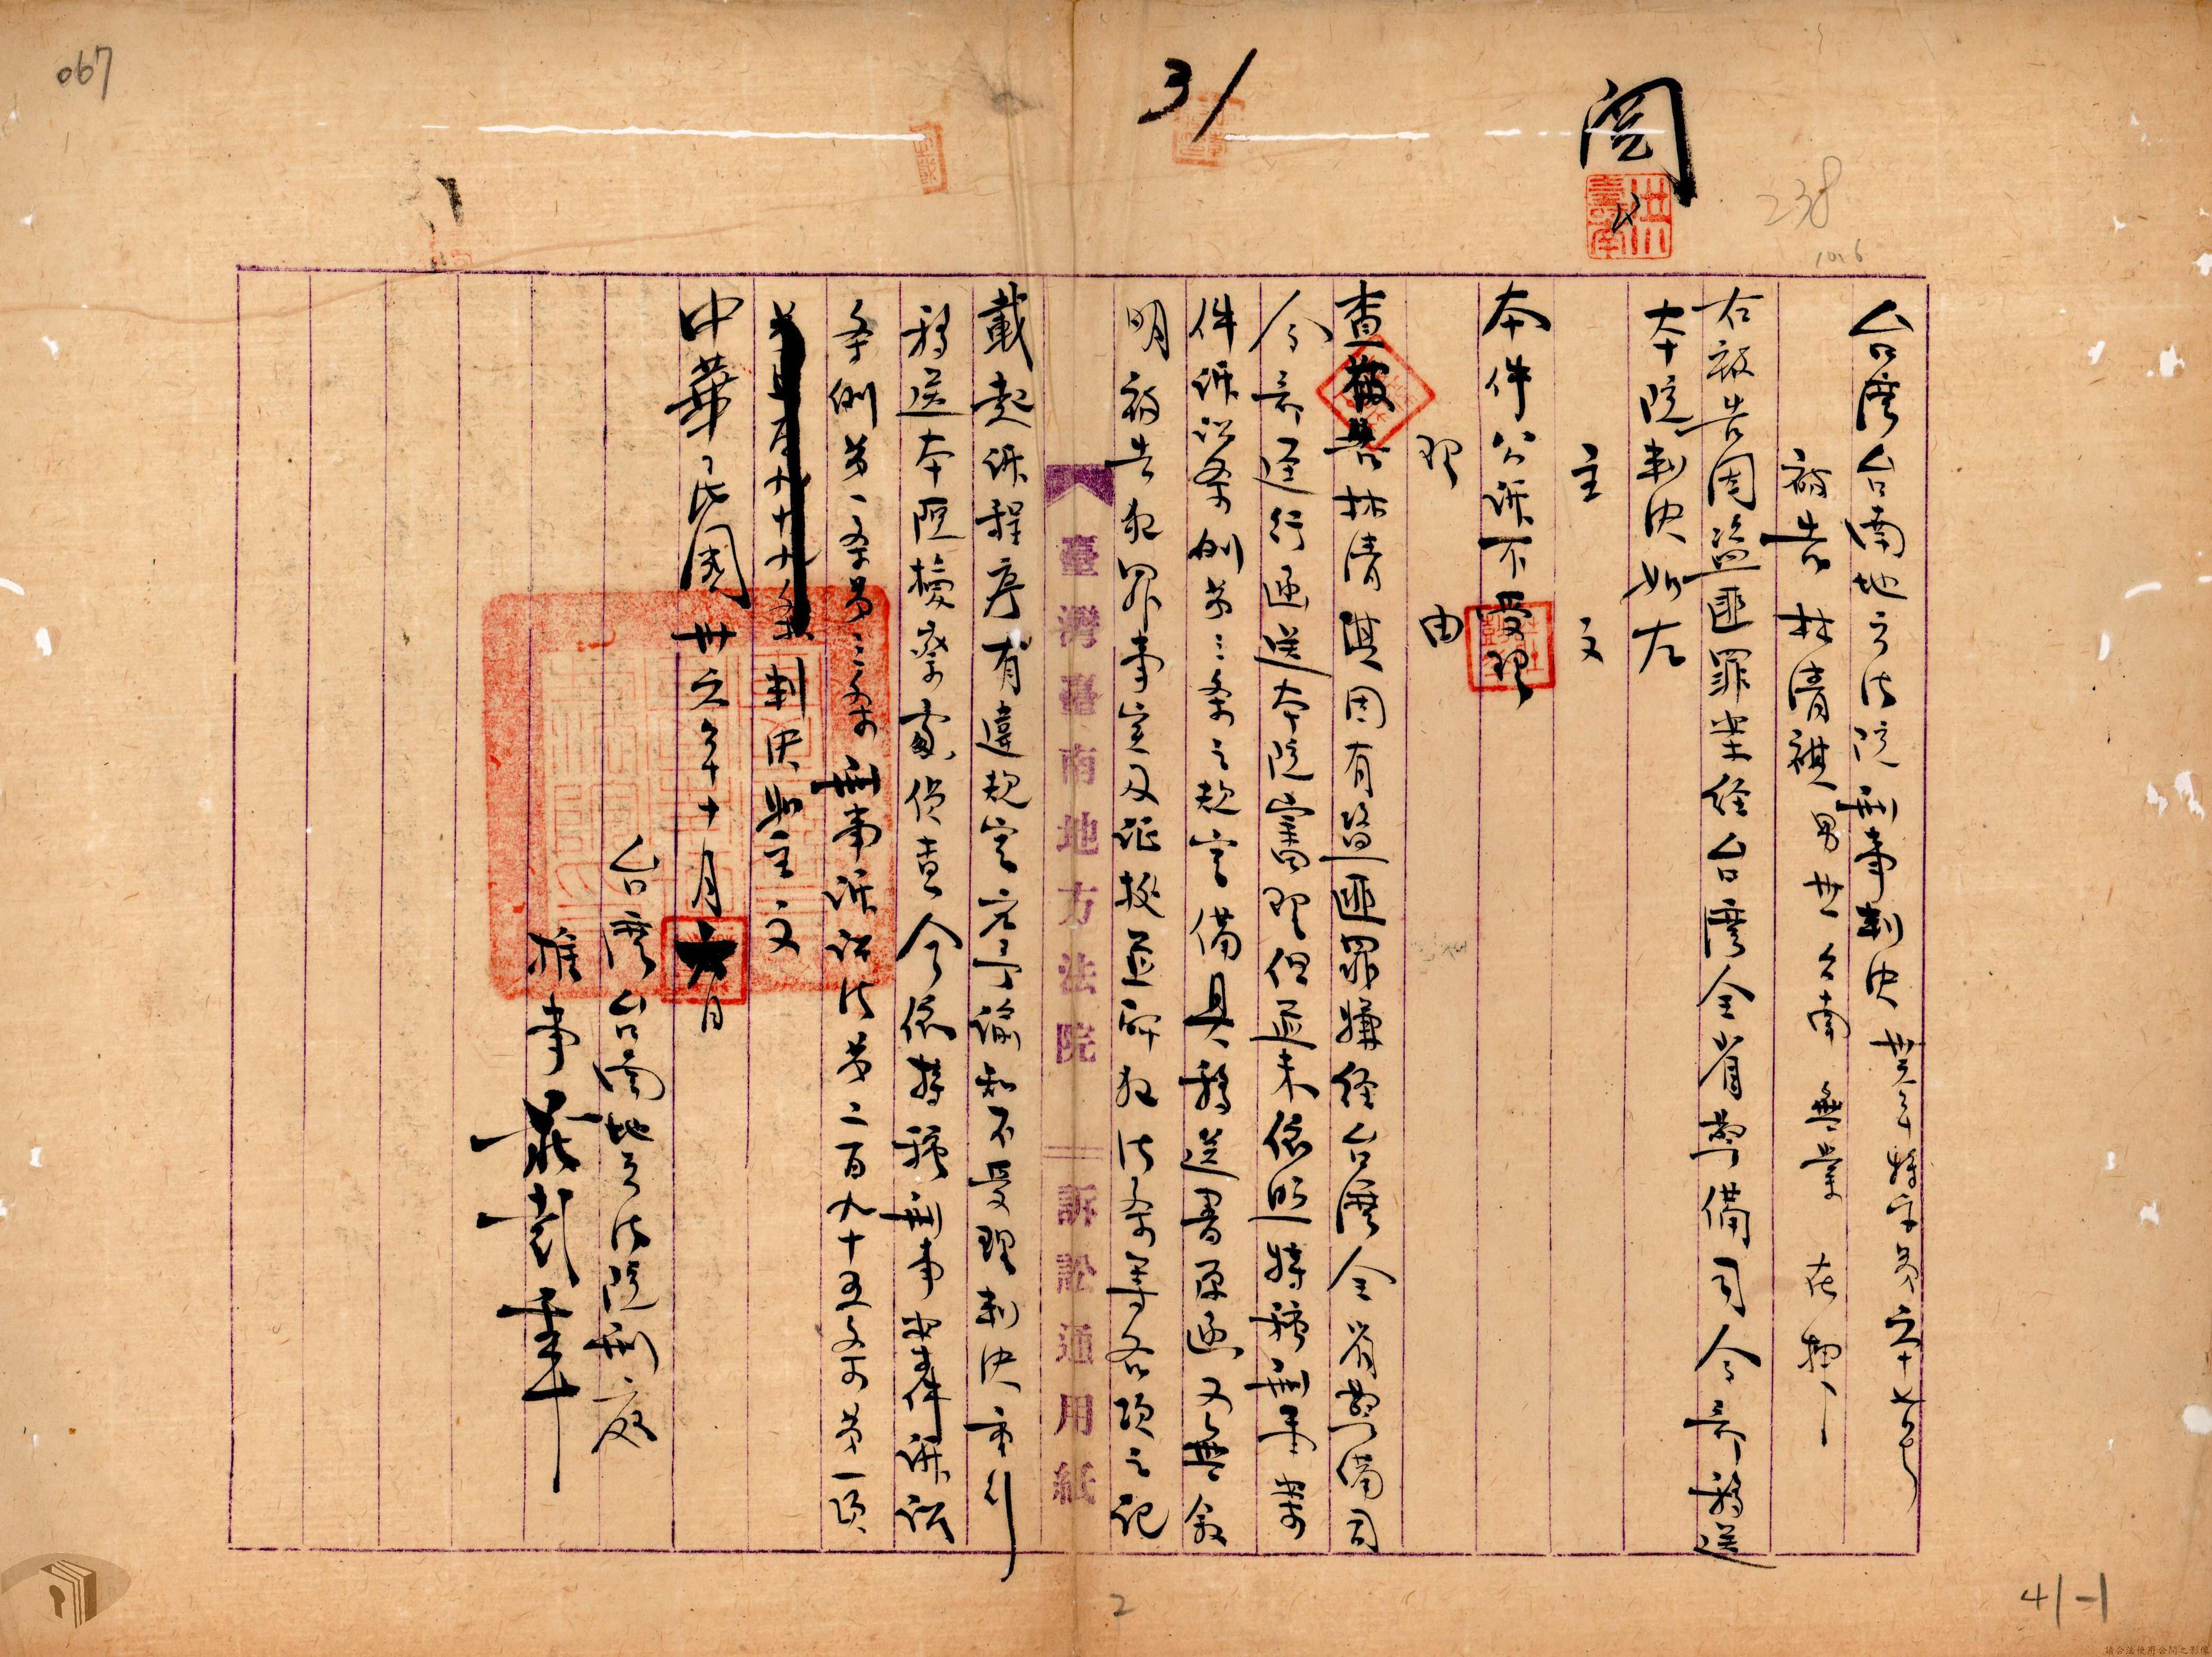 067
31
閱
238
1016
台灣台南地方法院刑事判決 卅六年特字第六十七号
被告 林清祺 男 廿 台南 無業 在押
右被告因盜匪罪案経台灣全省警備司令部移送
本院判決如左
主文
本件公訴不受理
理由
查被告林清淇因有盜匪罪嫌経台灣全省警備司
令部逕行函送本院審理但並未依照特種刑事案
件訴訟条例第三条之規定備具移送書原函又無叙
明被告犯罪事实及证拠並所犯法条等各項之記
臺灣臺南地方法院 訴訟通用紙
載起訴程序有違規定应予諭知不受理判決重行
移送本院檢察處偵查今依特種刑事案件訴訟
条例第一条第三条刑事訴訟法第二百九十五条第一項
判決如主文
中華民國卅六年十月六日
台灣台南地方法院刑庭
推事
2
41-1
請合法使用公開之影像